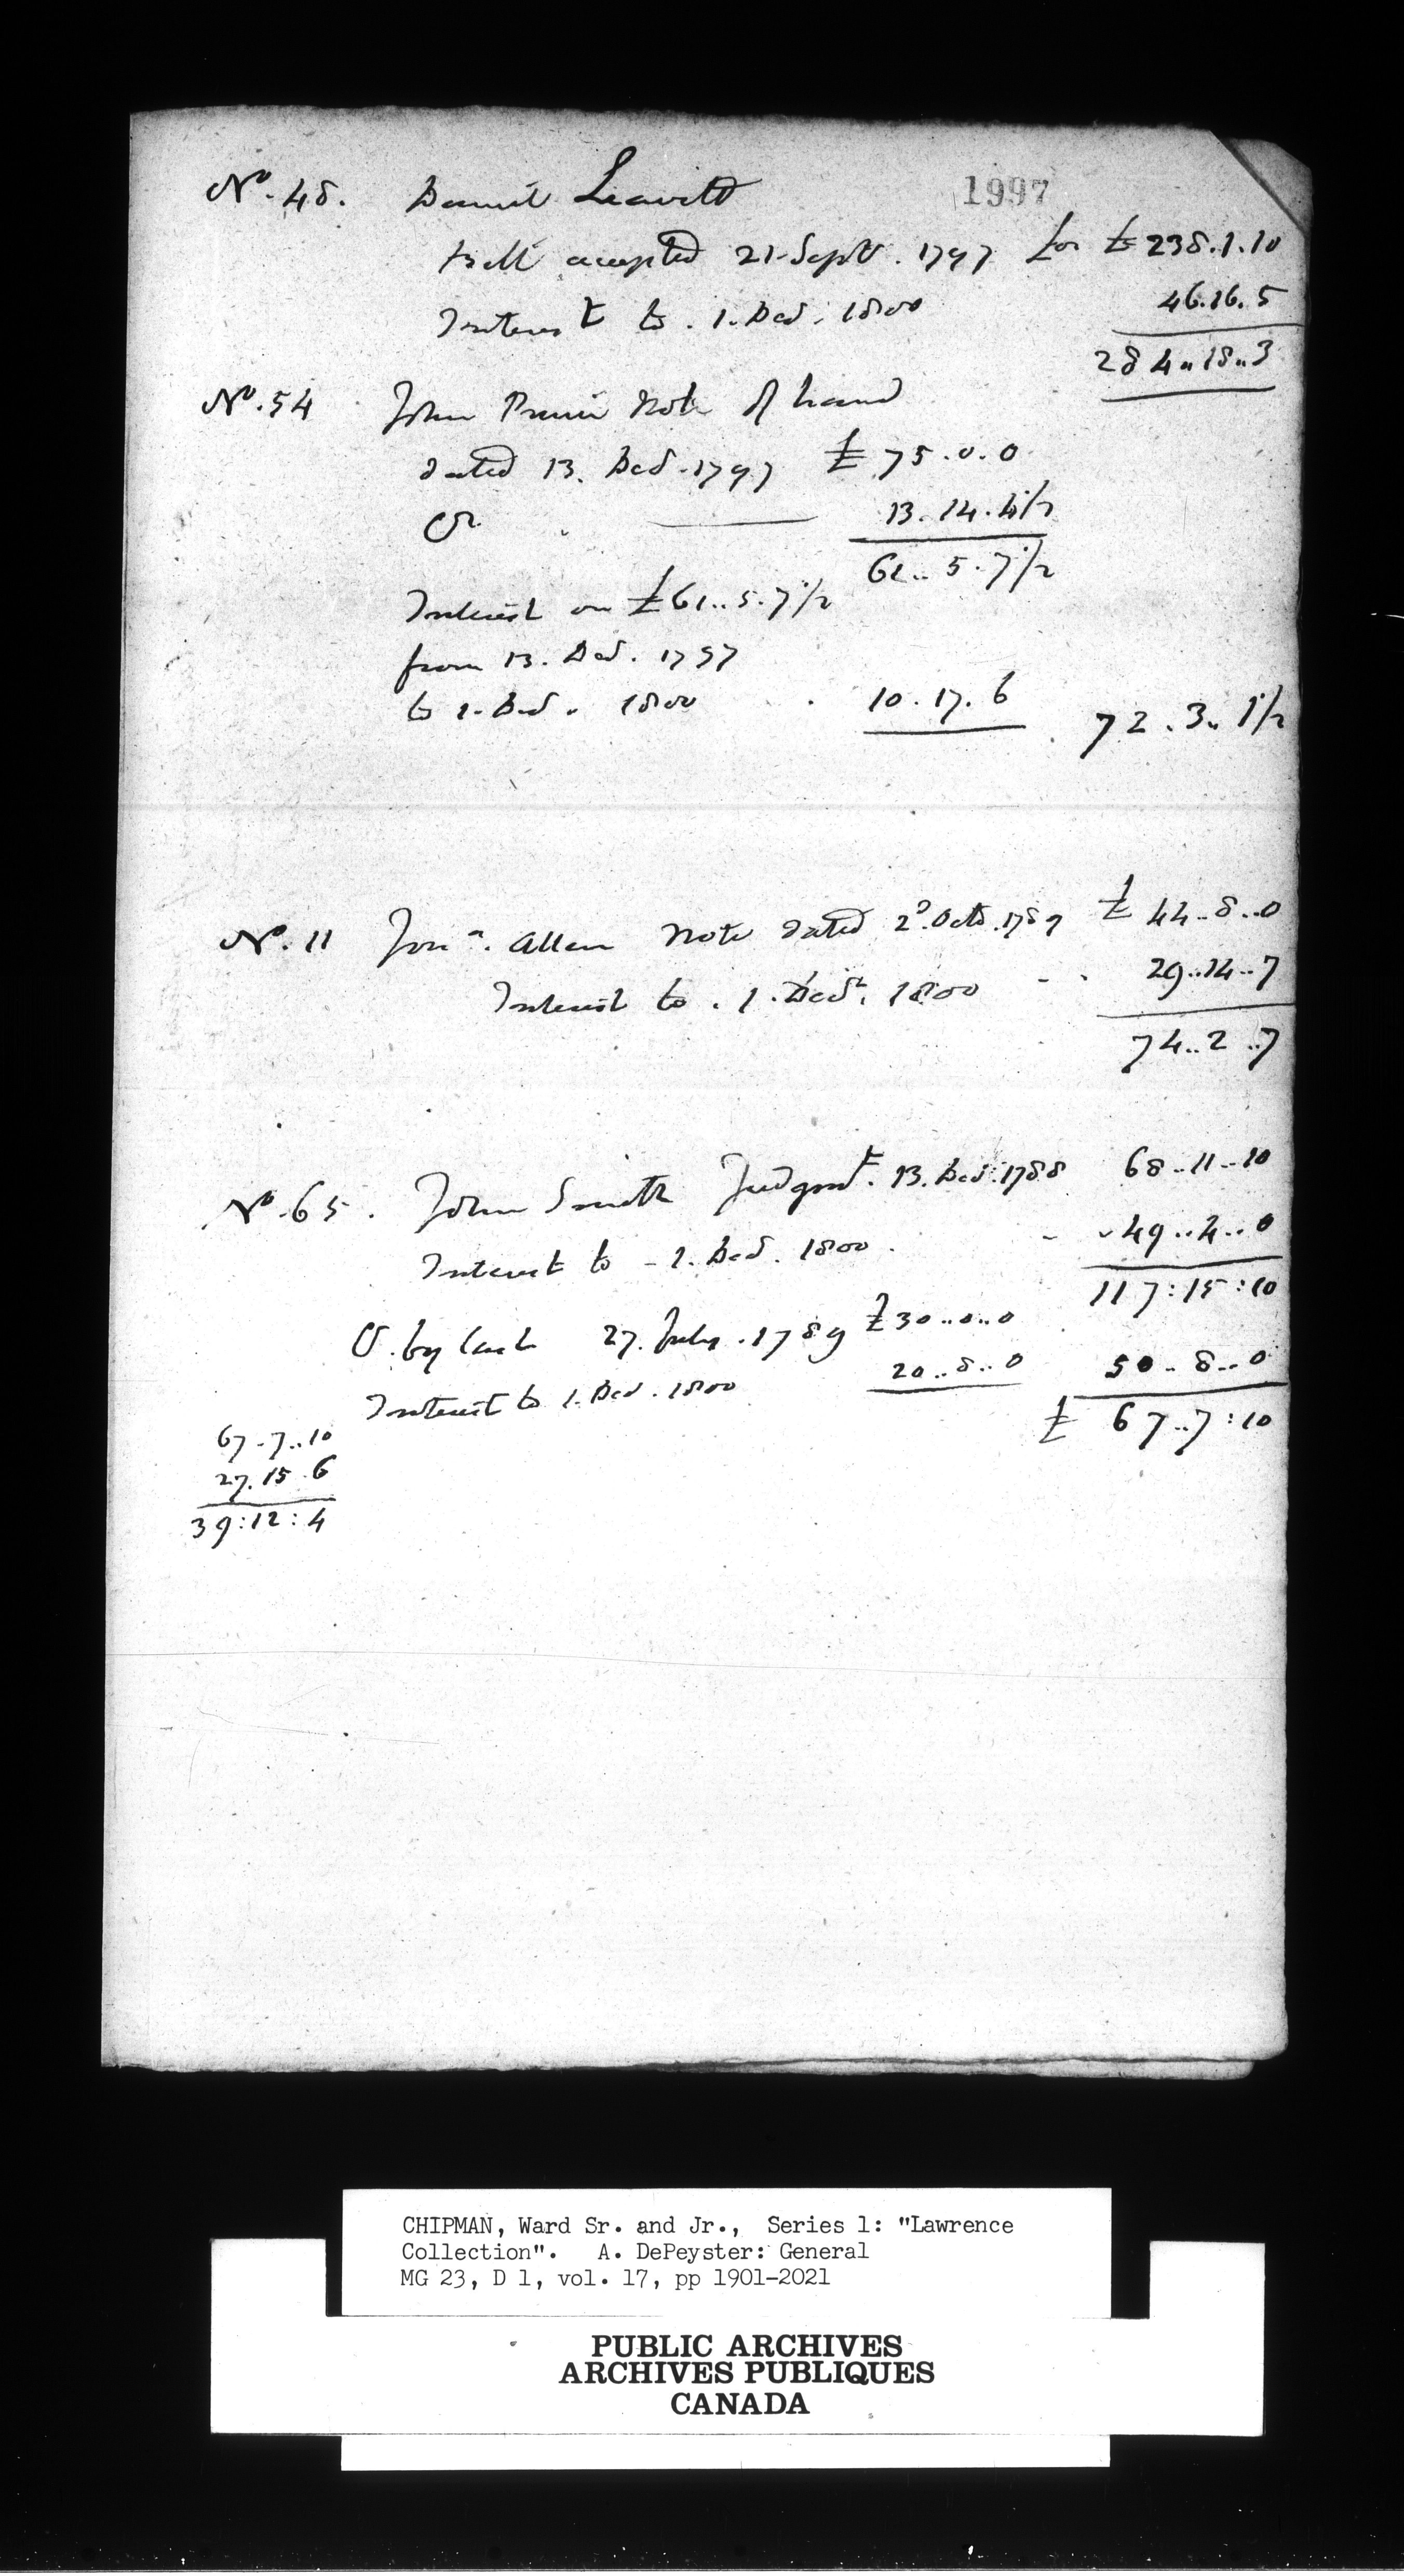 1997
No. 48. Daniel Leavitt
Bill accepted 21. Septr. 1797 for £ 238.1.10
Interest to . 1. Decr. 1800 46.16.5
284..18..3
No. 54 John note of hand
dated 13. Decr. 1797 £ 75.0.0
Cr. 13.14.4 1/2
61..5.7 1/2
Interest on £61..5.7 1/2
from 13. Decr. 1797
to 1. Decr. 1800 10.17.6 72.3..1 1/2
No. 11 Jona. Allen Note dated 2d. Octr. 1789 £ 44..8..0
Interest to . 1. Decr. 1800 29..14..7
74..2..7
No. 65. John Smith Judgmt. 13. Decr. 1788 68..11..10
Interest to - 1. Decr. 1800. 49..4..0
117:15:10
Cr. by Cash 27. July. 1789 £30..0..0
Interest to 1. Decr. 1800 20..8..0 50..8..0
£ 67..7:10
67..7..10
27.15.6
39:12:4
CHIPMAN, Ward Sr. and Jr., Series 1: "Lawrence
Collection". A. DePeyster: General
MG 23, D 1, vol. 17, pp 1901-2021
PUBLIC ARCHIVES
ARCHIVES PUBLIQUES
CANADA